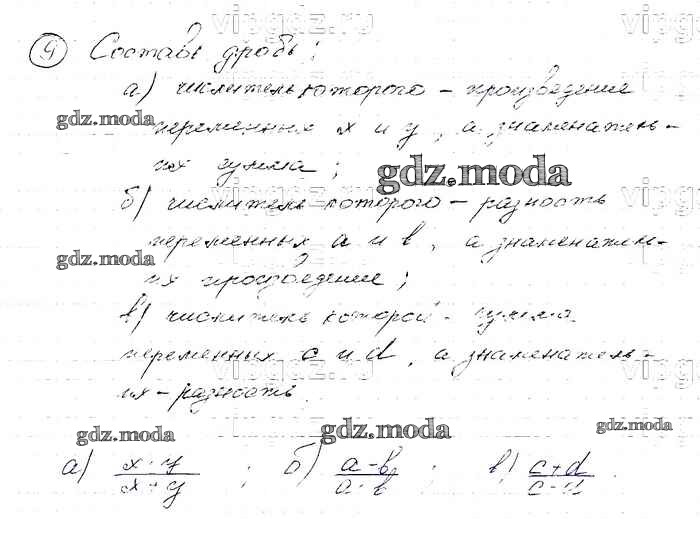 9 Составь дробь:
а) числитель которого – произведение
переменных x и y, а знаменатель-
их сумма;
б) числитель которого – разность
переменных a и b, а знаменатель-
их произведение;
в) числитель которой - сумма
переменных c и d, а знаменатель-
их - разность.
а) x·y / x+y ; б) a-b / a·b ; в) c+d / c-d
gdz.moda
gdz.moda
gdz.moda
gdz.moda
gdz.moda
gdz.moda
vipgdz.ru